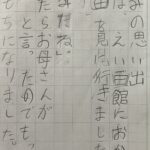 の思い出
、えい画館におか
画を見に行きました
たね」
たらお母さんが
と言ったのでも
もちになりました。